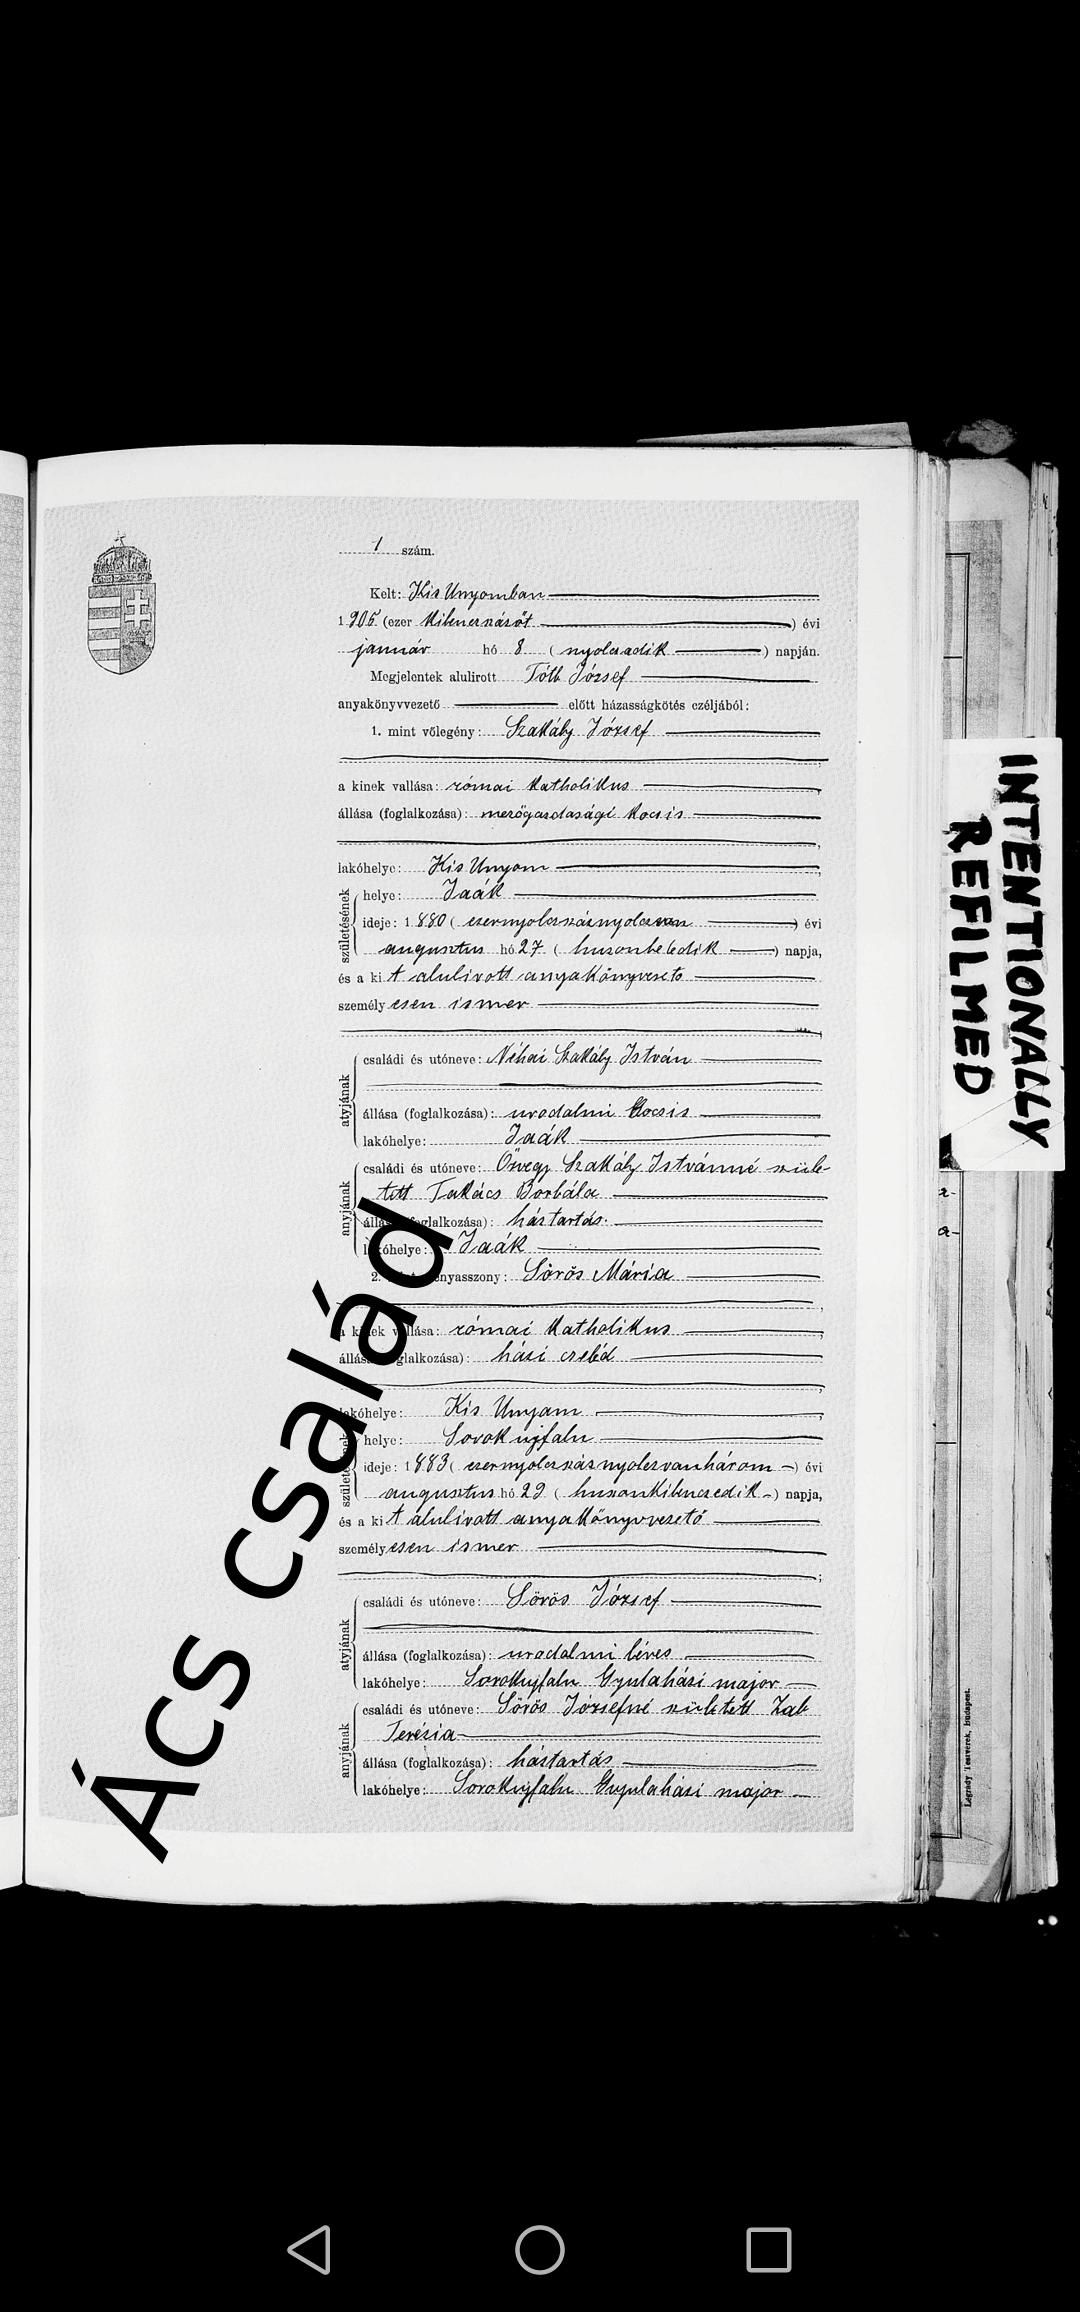 1 szám.
Kelt: Kis Unyomban
1905 (ezer kilencszázöt) évi
január hó 8 (nyolczadik) napján.
Megjelentek alulirott Tóth József
anyakönyvvezető előtt házasságkötés czéljából:
1. mint vőlegény: Szakály József
a kinek vallása: római katholikus
állása (foglalkozása): mezőgazdasági kocsis
lakóhelye: Kis Unyom
születésének
helye: Jaák
ideje: 1880 (ezernyolczszáznyolczvan) évi
augusztus hó 27 (huszonhetedik) napja,
és a kit alulirott anyakönyvvezető
személyesen ismer
atyjának
családi és utóneve: Néhai Szakály István
állása (foglalkozása): uradalmi kocsis
lakóhelye: Jaák
anyjának
családi és utóneve: Özvegy Szakály Istvánné szüle-
tett Takács Borbála
állása (foglalkozása): háztartás
lakóhelye: Jaák
2. mint menyasszony: Sörös Mária
a kinek vallása: római katholikus
állása (foglalkozása): házi cseléd
lakóhelye: Kis Unyom
születésének
helye: Sorok ujfalu
ideje: 1883 (ezernyolczszáznyolczvanhárom) évi
augusztus hó 29 (huszonkilenczedik) napja,
és a kit alulirott anyakönyvvezető
személyesen ismer
atyjának
családi és utóneve: Sörös József
állása (foglalkozása): uradalmi béres
lakóhelye: Sorokujfalu Gyulaházi major
anyjának
családi és utóneve: Sörös Józsefné született Zab
Terézia
állása (foglalkozása): háztartás
lakóhelye: Sorokujfalu Gyulaházi major
Ács család
INTENTIONALLY
REFILMED
Légrády Testvérek, Budapest.